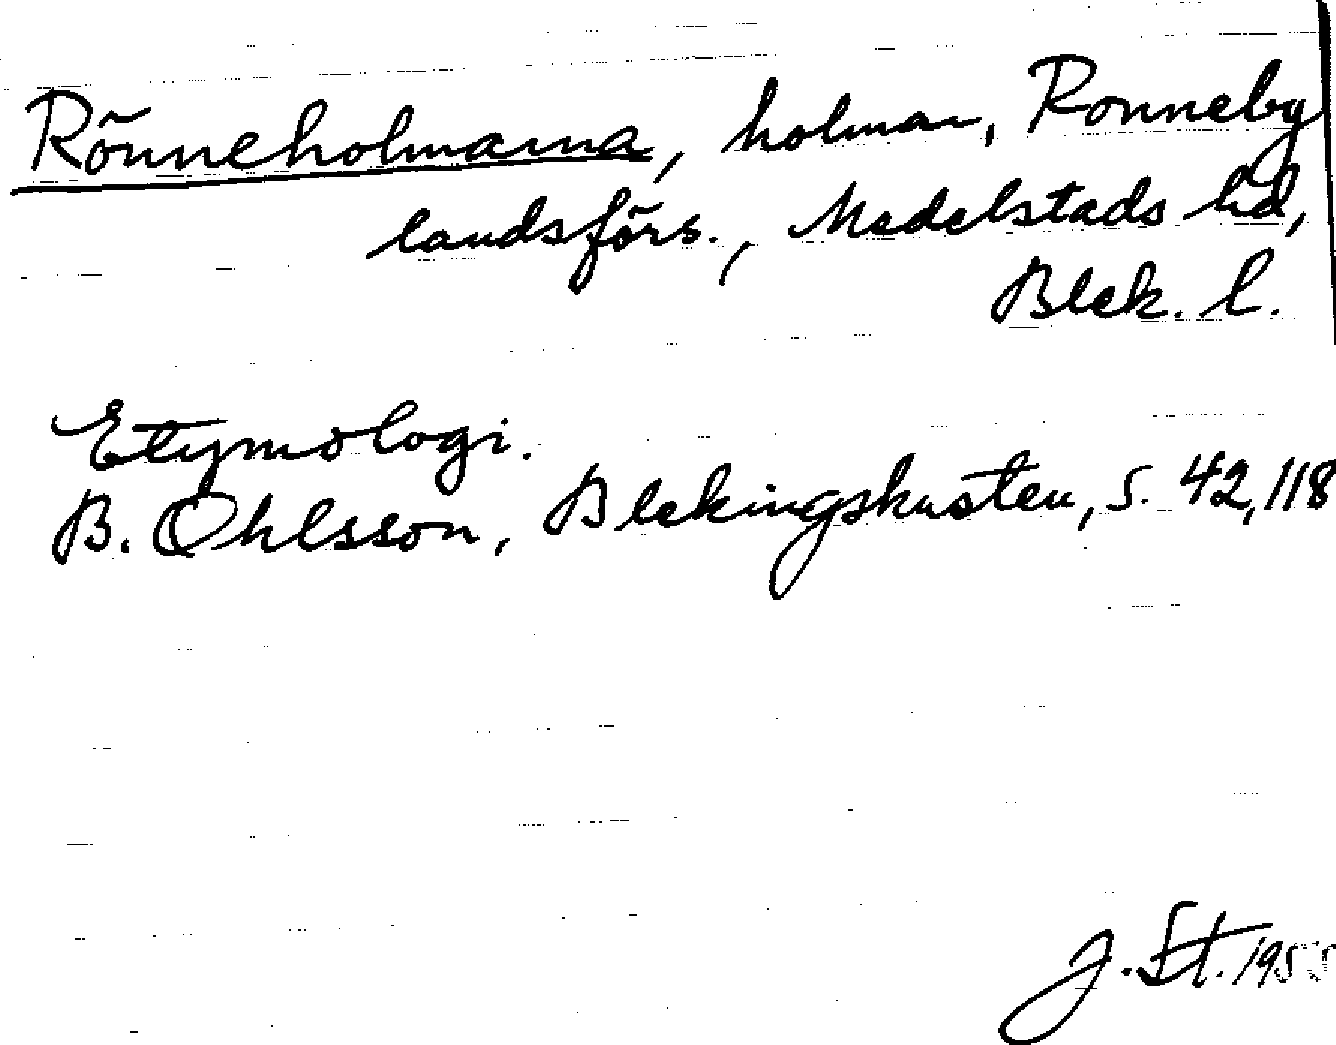 Rönneholmarna, holmar, Ronneby
landsförs., Medelstads hd,
Blek. l.
Etymologi.
B. Ohlsson, Blekingskusten, s. 42, 118
J. St. 1955